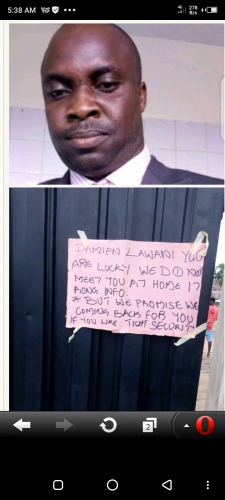 5:38 AM
DAMIAN LAWANI YOU
ARE LUCKY WE DID NOT
MEET YOU AT HOME
RONG INFO.
* BUT WE PROMISE WE
COMING BACK FOR YOU
IF YOU LIKE TIGHT SECURITY
2